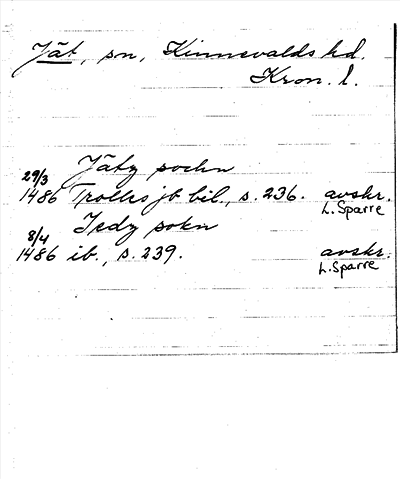 Jät, sn, Kinnevalds hd.
Kron. l.
Jätz sockn
29/3
1486 Trolles jb bil., s. 236. avskr.
L. Sparre
Jedz sokn
8/4
1486 ib., s. 239. avskr.
L. Sparre